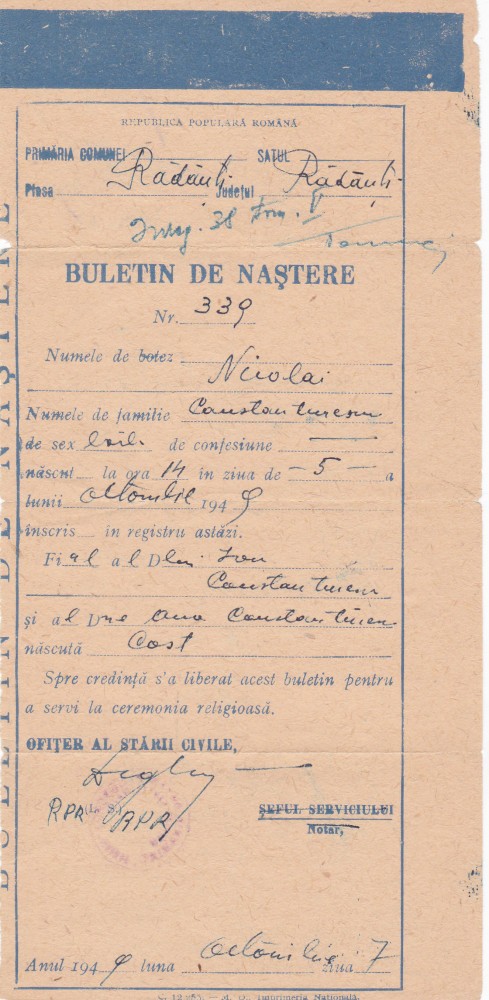 REPUBLICA POPULARĂ ROMÂNĂ
PRIMĂRIA COMUNEI SATUL
Rădăuți Rădăuți
Plasa Județul
38
BULETIN DE NAȘTERE
Nr. 339
Numele de botez
Nicolai
Numele de familie Constantinescu
de sex bărb. de confesiune —
născut la ora 14 în ziua de - 5 - a
lunii Octombrie 1949
înscris în registru astăzi.
Fi al al Dlui Ion
Constantinescu
și al Dne Ana Constantinescu
născută Cost
Spre credință s'a liberat acest buletin pentru
a servi la ceremonia religioasă.
OFIȚER AL STĂRII CIVILE,
RPR (L. S.) RPR
ȘEFUL SERVICIULUI
Notar,
Anul 1949 luna Octombrie ziua 7
Imprimeria Națională.
BULETIN DE NAȘTERE